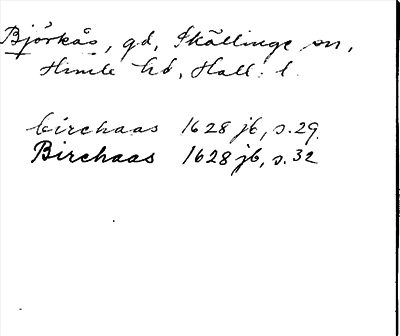 Björkås, gd, Skällinge sn,
Himle hd, Hall. l.
birchaas 1628 jb, s. 29.
Birchaas 1628 jb, s. 32